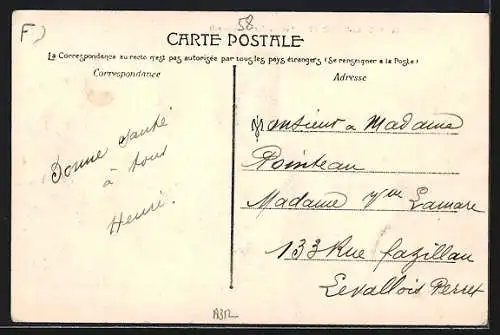 F)
58
CARTE POSTALE
La Correspondance au recto n'est pas autorisée par tous les pays étrangers (Se renseigner à la Poste)
Correspondance
Adresse
Bonne santé
à tous
Henri.
Monsieur & Madame
Pointeau
Madame Vve Lamare
133 Rue fazillau
Levallois Perret